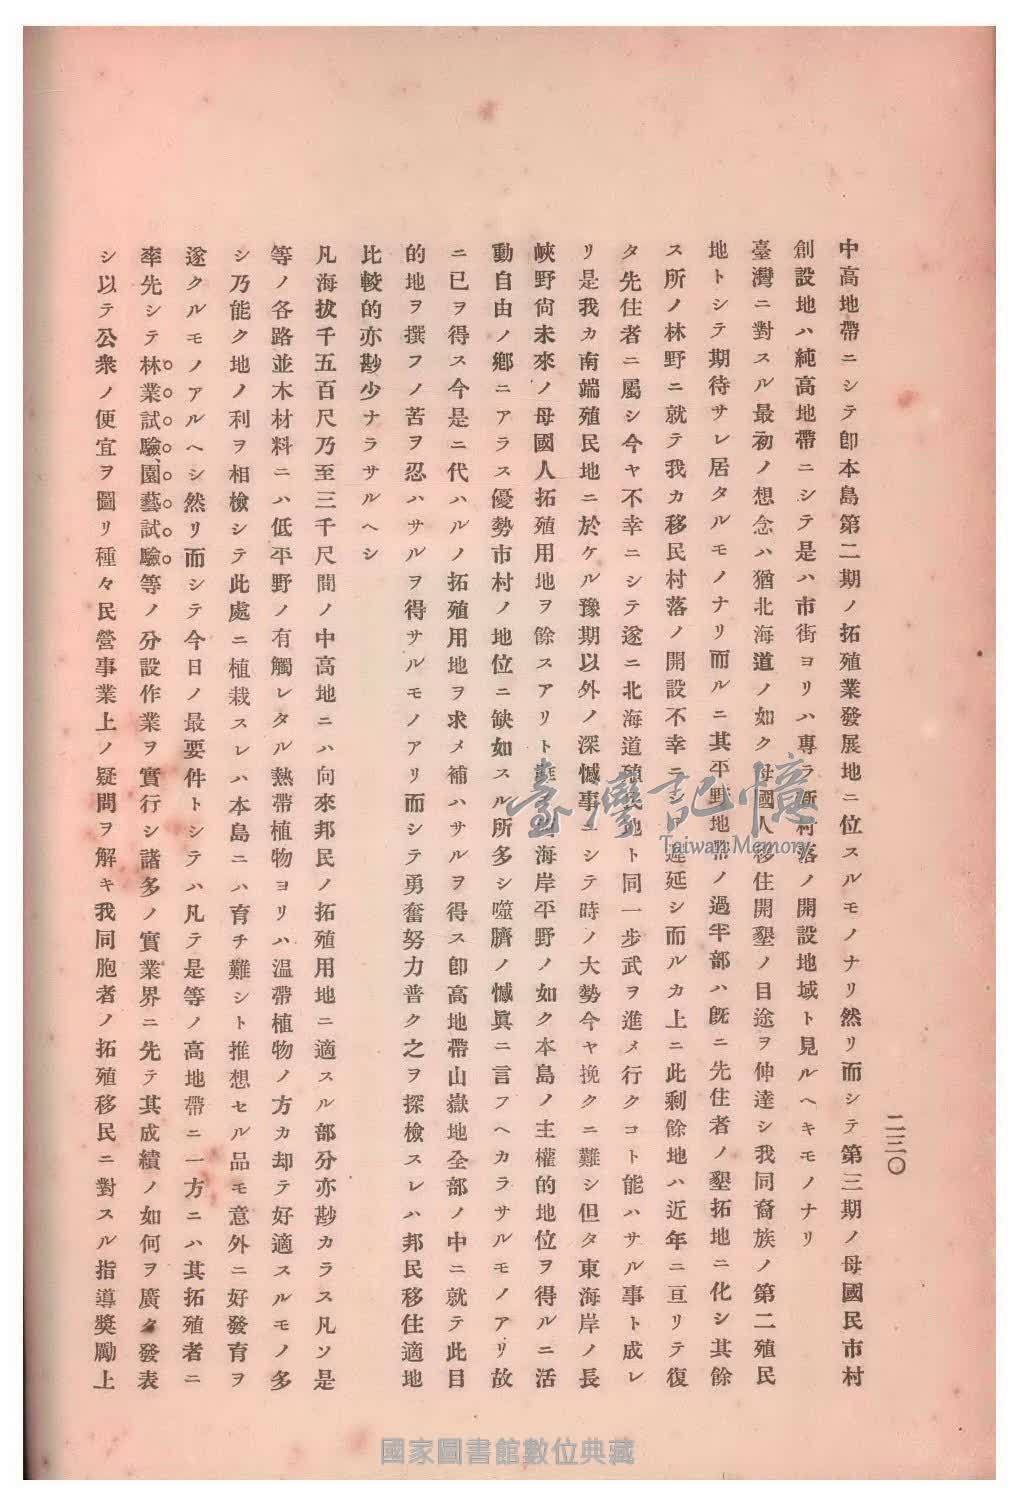 二三〇
中高地帶ニシテ卽本島第二期ノ拓殖業發展地ニ位スルモノナリ然リ而シテ第三期ノ母國民市村
創設地ハ純高地帶ニシテ是ハ市街ヨリハ專ラ新村落ノ開設地域ト見ルヘキモノナリ
臺灣ニ對スル最初ノ想念ハ猶北海道ノ如ク母國人移住開墾ノ目途ヲ伸達シ我同裔族ノ第二殖民
地トシテ期待サレ居タルモノナリ而ルニ其平野地帶ノ過半部ハ旣ニ先住者ノ墾拓地ニ化シ其餘
ス所ノ林野ニ就テ我カ移民村落ノ開設不幸ニシ遲延シ而ルカ上ニ此剩餘地ハ近年ニ亘リテ復
タ先住者ニ屬シ今ヤ不幸ニシテ遂ニ北海道殖民地ト同一步武ヲ進メ行クコト能ハサル事ト成レ
リ是我カ南端殖民地ニ於ケル豫期以外ノ深憾事ニシテ時ノ大勢今ヤ挽クニ難シ但タ東海岸ノ長
峽野尙未來ノ母國人拓殖用地ヲ餘スアリト雖モ海岸平野ノ如ク本島ノ主權的地位ヲ得ルニ活
動自由ノ鄕ニアラス優勢市村ノ地位ニ缺如スル所多シ噬臍ノ憾眞ニ言フヘカラサルモノアリ故
ニ已ヲ得ス今是ニ代ハルノ拓殖用地ヲ求メ補ハサルヲ得ス卽高地帶山嶽地全部ノ中ニ就テ此目
的地ヲ撰フノ苦ヲ忍ハサルヲ得サルモノアリ而シテ勇奮努力普ク之ヲ探檢スレハ邦民移住適地
比較的亦尠少ナラサルヘシ
凡海拔千五百尺乃至三千尺間ノ中高地ニハ向來邦民ノ拓殖用地ニ適スル部分亦尠カラス凡ソ是
等ノ各路並木材料ニハ低平野ノ有觸レタル熱帶植物ヨリハ溫帶植物ノ方カ却テ好適スルモノ多
シ乃能ク地ノ利ヲ相檢シテ此處ニ植栽スレハ本島ニハ育チ難シト推想セル品モ意外ニ好發育ヲ
遂クルモノアルヘシ然リ而シテ今日ノ最要件トシテハ凡テ是等ノ高地帶ニ一方ニハ其拓殖者ニ
率先シテ林業試驗、園藝試驗等ノ分設作業ヲ實行シ諸多ノ實業界ニ先テ其成績ノ如何ヲ廣ク發表
シ以テ公衆ノ便宜ヲ圖リ種々民營事業上ノ疑問ヲ解キ我同胞者ノ拓殖移民ニ對スル指導奬勵上
臺灣記憶
Taiwan Memory
國家圖書館數位典藏